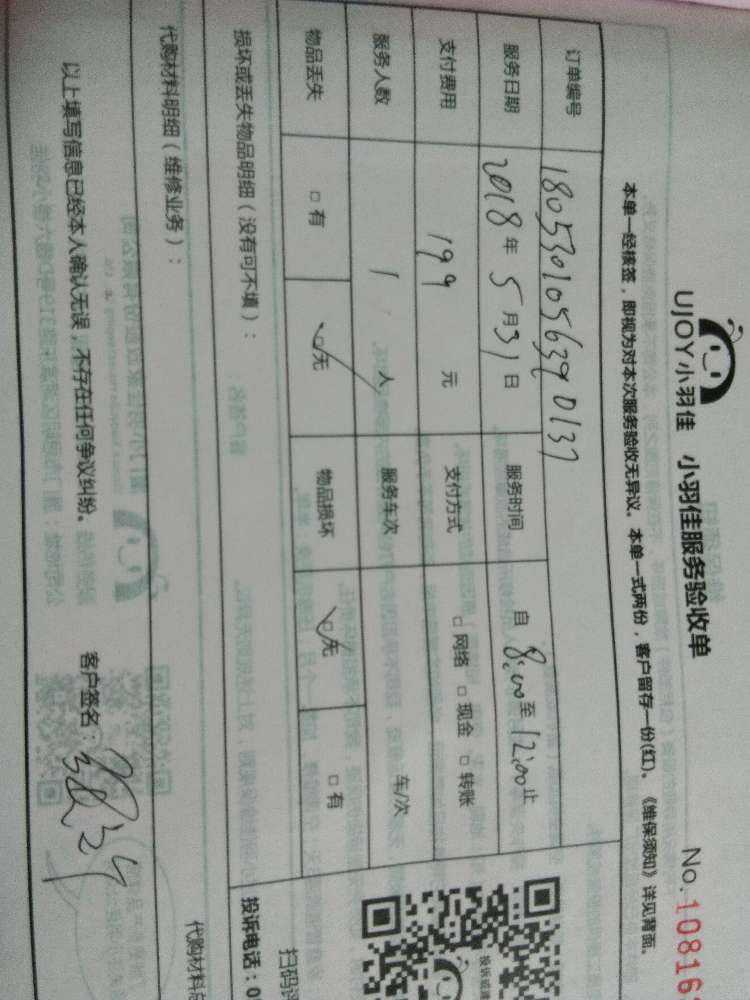 UJOY小羽佳 小羽佳服务验收单
No.10816
本单一经核签，即视为对本次服务验收无异议。本单一式两份，客户留存一份(红)。《维保须知》详见背面。
订单编号 180530105639 0137
服务日期 2018年5月31日 服务时间 自8:00至12:00止
支付费用 199元 支付方式 □网络 □现金 □转账
服务人数 1人 服务车次 车/次
物品丢失 □有 □无 物品损坏 □无 □有
损坏或丢失物品明细（没有可不填）：
投诉电话：0
扫码评
代购材料明细（维修业务）：
代购材料总
以上填写信息已经本人确认无误，不存在任何争议纠纷。 客户签名：